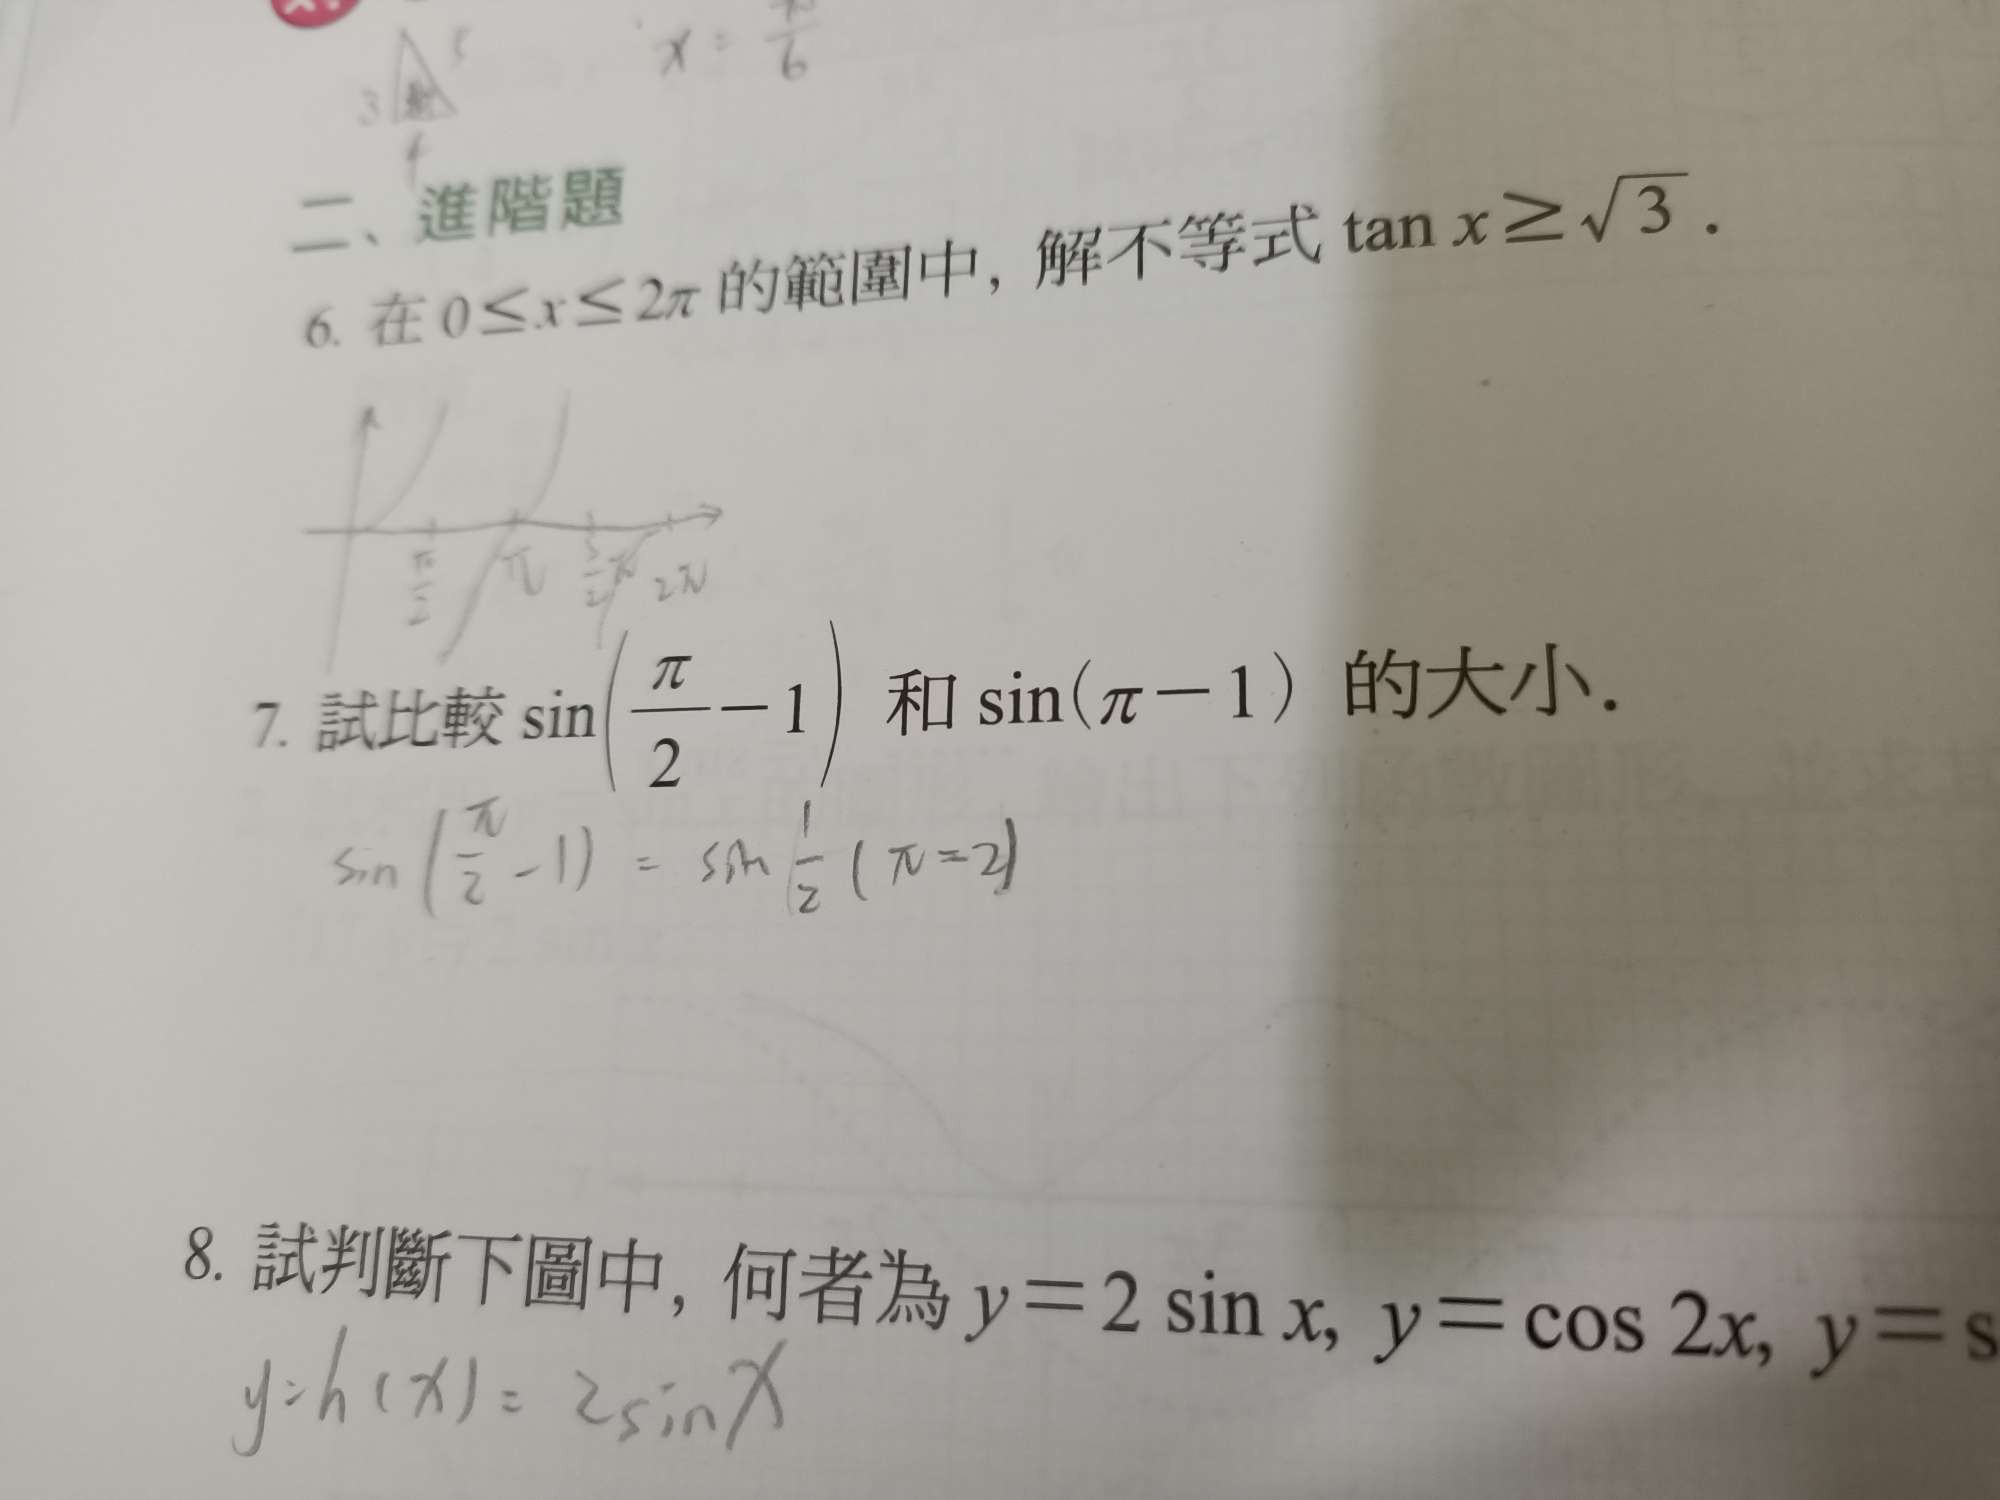 3 5
4
x = π/6
二、進階題
6. 在 0≤x≤2π 的範圍中, 解不等式 tan x≥√3 .
π/2 π 3/2 π 2π
7. 試比較 sin(π/2−1) 和 sin(π−1) 的大小.
sin(π/2-1) = sin 1/2 (π=2)
8. 試判斷下圖中, 何者為 y=2 sin x, y=cos 2x, y=s
y=h(x)= 2sinx